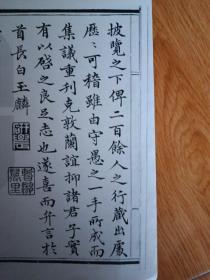 披覽之下俾二百餘人之行藏出處
歷〻可稽雖由守愚之一手所成而
集議重刊克敦蘭誼抑諸君子實
有以啓之良足志也遂喜而弁言於
首長白玉麟